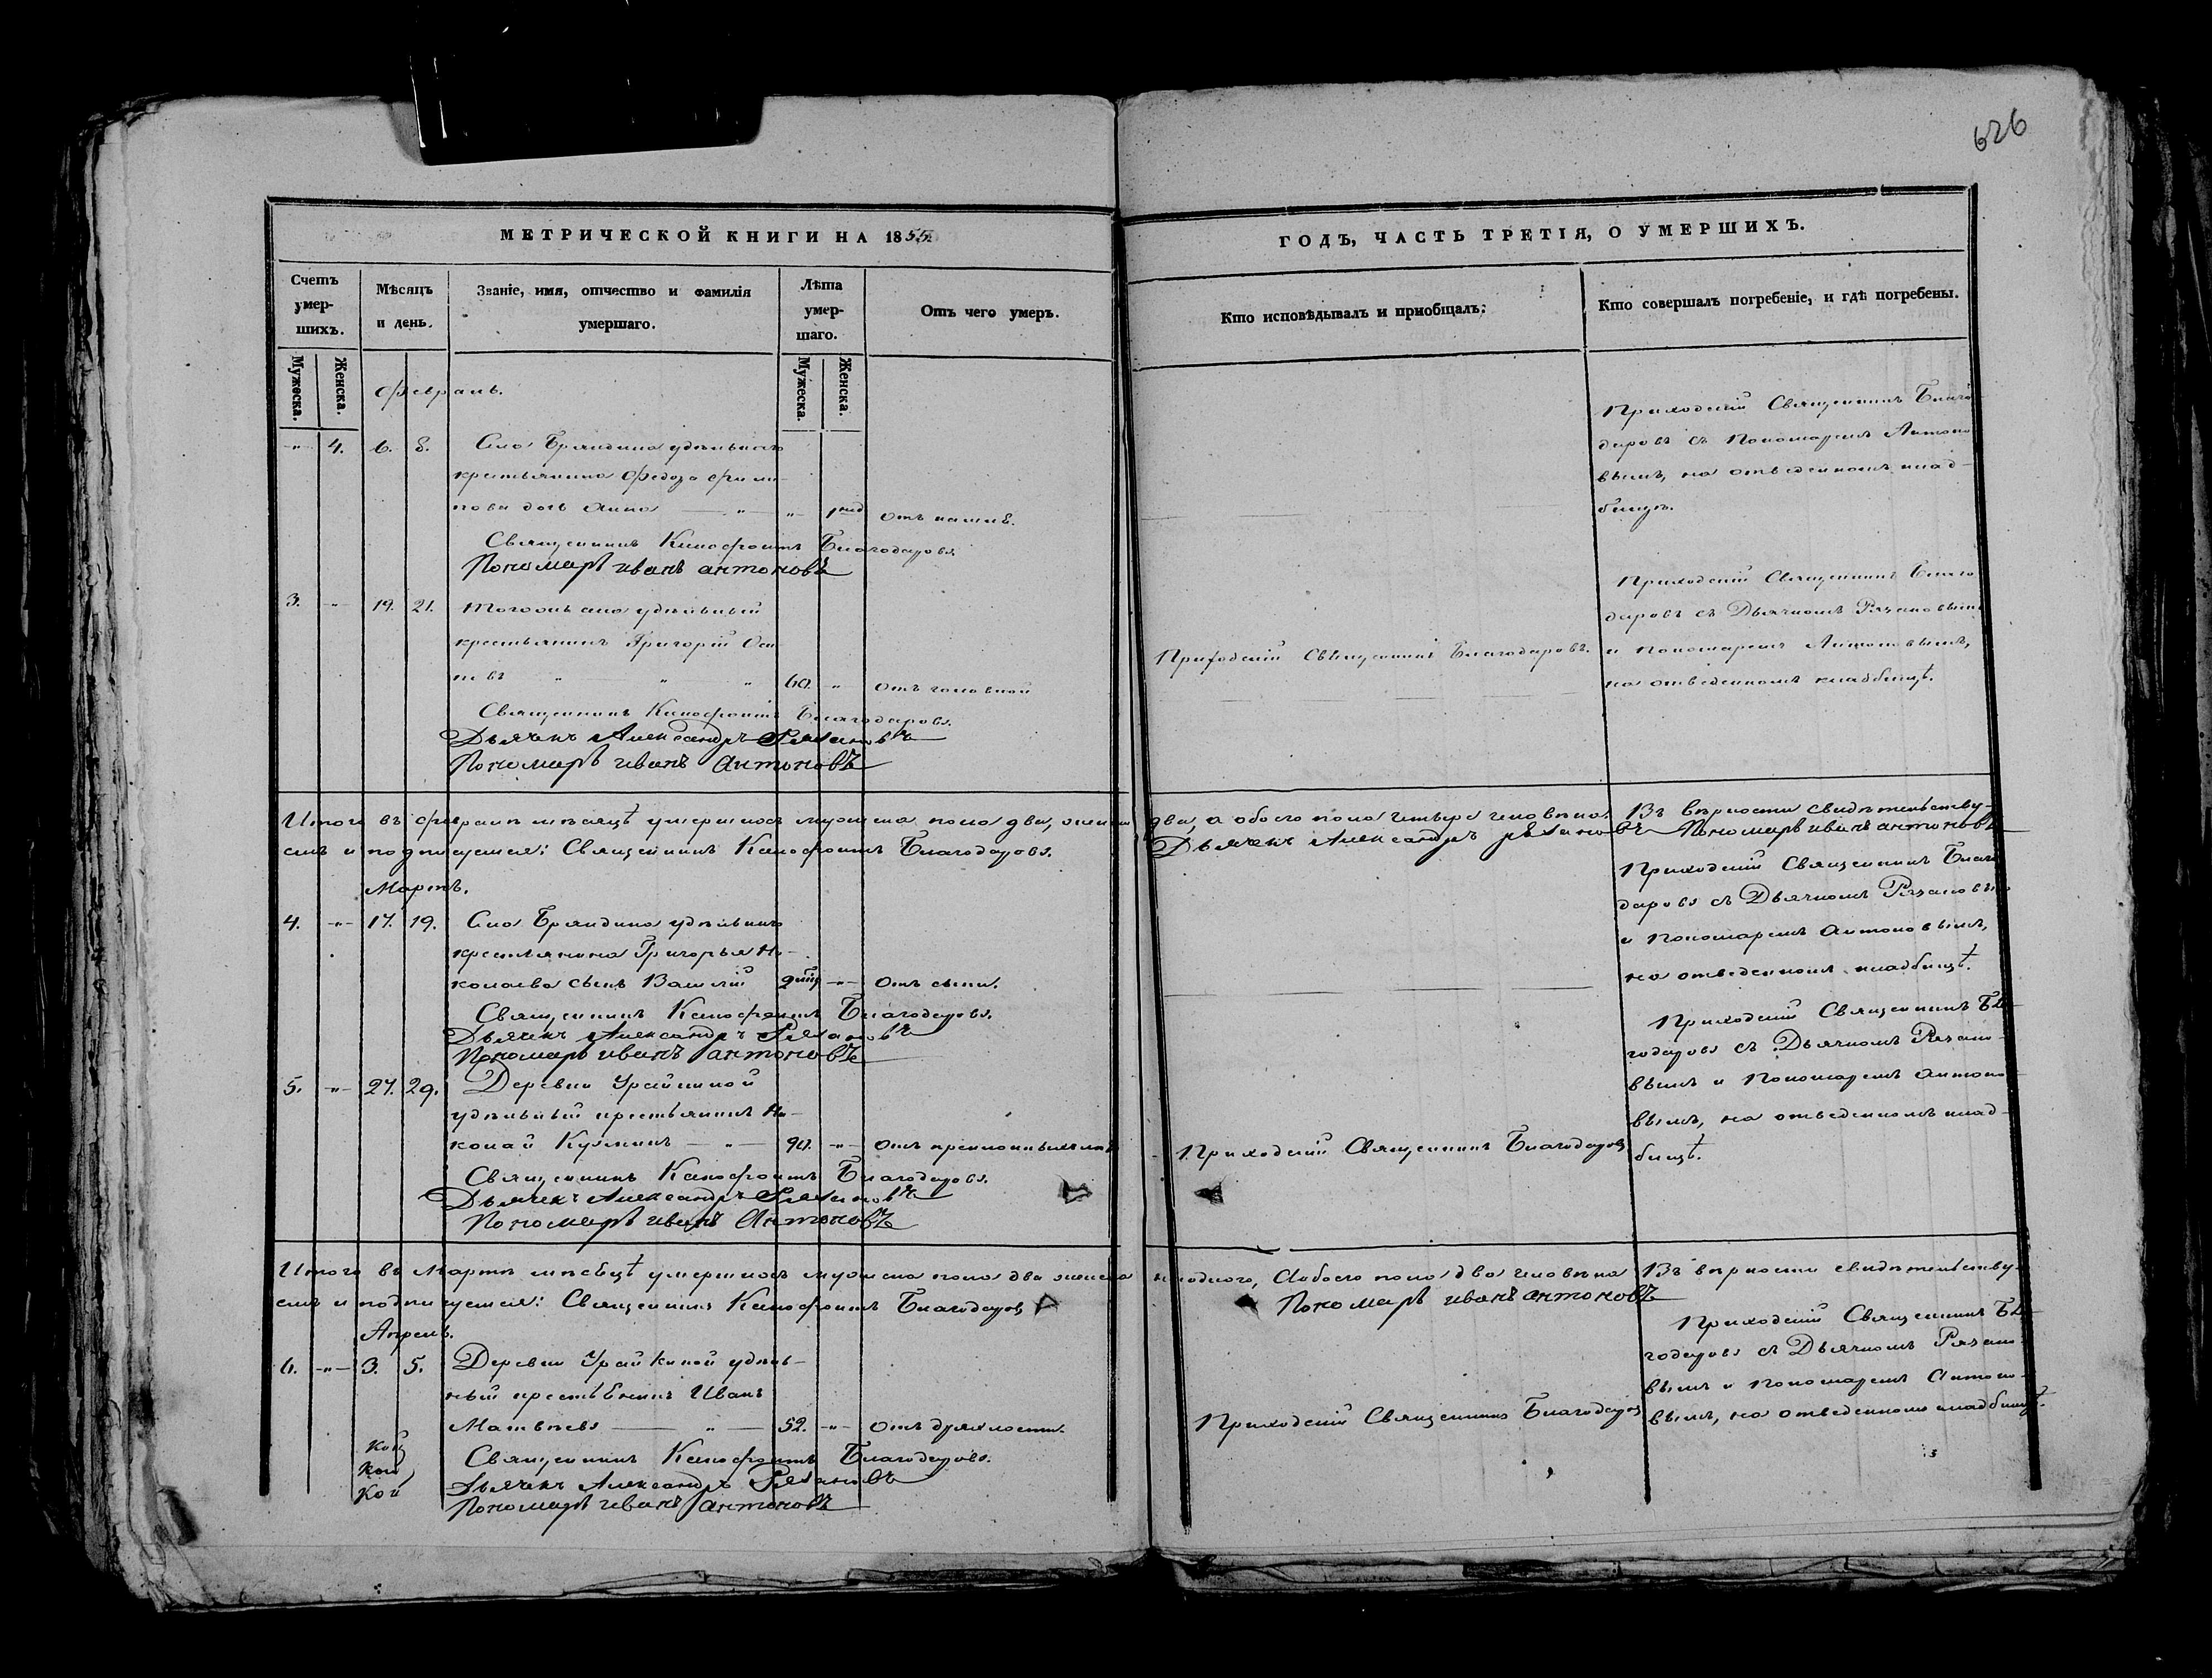 626
МЕТРИЧЕСКОЙ КНИГИ НА 1855
ГОДЪ, ЧАСТЬ ТРЕТІЯ, О УМЕРШИХЪ.
Счетъ умер-
шихъ.
Мѣсяцъ
и день.
Званіе, имя, отчество и фамилія
умершаго.
Лѣта
умер-
шаго.
Отъ чего умеръ.
Кто исповѣдывалъ и приобщалъ:
Кто совершалъ погребеніе, и гдѣ погребены.
Мужеска.
Женска.
Мужеска.
Женска.
Февраль.
-"- 4. 6. 8. Села Бряндина удѣльнаго
крестьянина Федора Фили-
пова дочь Анна — " — " 1 нед Отъ кашля.
Священникъ Ксенофонтъ Благодаровъ
Пономарь иванъ антоновъ
Приходскій Священникъ Благо
даровъ съ Пономаремъ Антоно
вымъ, на отведенномъ клад-
бищѣ.
3. -"- 19. 21. Тогожъ села удѣльный
крестьянинъ Григорій Оси
повъ " " " 60. " Отъ головной
Священникъ Ксенофонтъ Благодаровъ.
Дьячекъ Александръ Рязановъ
Пономарь иванъ Антоновъ
Приходскій Священникъ Благодаровъ.
Приходскій Священникъ Благо
даровъ съ Дьячкомъ Рязановымъ
и Пономаремъ Антоновымъ,
на отведенномъ кладбищѣ.
Итого въ февралѣ мѣсяцѣ умершихъ мужеска пола два, женска два, а обоего пола четыре человѣка. Въ вѣрности свидѣтельству-
емъ и подписуемся: Священникъ Ксенофонтъ Благодаровъ. Дьячекъ Александръ Рязановъ Пономарь иванъ антоновъ
Мартъ.
4. -"- 17. 19. Села Бряндина удѣльнаго
крестьянина Григорья Ни-
колаева сынъ Василій -"- Отъ сыпи.
Священникъ Ксенофонтъ Благодаровъ.
Дьячекъ Александръ Рязановъ
Пономарь иванъ антоновъ
Приходскій Священникъ Благо
даровъ съ Дьячкомъ Рязановымъ
и Пономаремъ Антоновымъ,
на отведенномъ кладбищѣ.
5. -"- 27. 29. Деревни Урайкиной
удѣльный крестьянинъ Ни-
колай Кузминъ — " — 90. -"- Отъ преклонныхъ лѣтъ
Священникъ Ксенофонтъ Благодаровъ.
Дьячекъ Александръ Рязановъ
Пономарь иванъ Антоновъ
Приходскій Священникъ Благодаровъ
Приходскій Священникъ Бла-
годаровъ съ Дьячкомъ Рязано-
вымъ и Пономаремъ Антоно-
вымъ, на отведенномъ клад-
бищѣ.
Итого въ Мартѣ мѣсяцѣ умершихъ мужеска пола два женска ни одного, А обоего пола два человѣка Въ вѣрности свидѣтельству-
емъ и подписуемся: Священникъ Ксенофонтъ Благодаровъ Пономарь иванъ антоновъ
Апрель.
6. -"- 3. 5. Деревни Урайкиной удѣль-
ный крестьянинъ Иванъ
Матвѣевъ — " — 52. -"- Отъ дряхлости.
Священникъ Ксенофонтъ Благодаровъ.
Дьячекъ Александръ Рязановъ
Пономарь иванъ антоновъ
Кой
Кой
Кой
Приходскій Священникъ Благодаровъ
Приходскій Священникъ Бла-
годаровъ съ Дьячкомъ Рязано-
вымъ и Пономаремъ Антоно-
вымъ, на отведенномъ кладбищѣ.